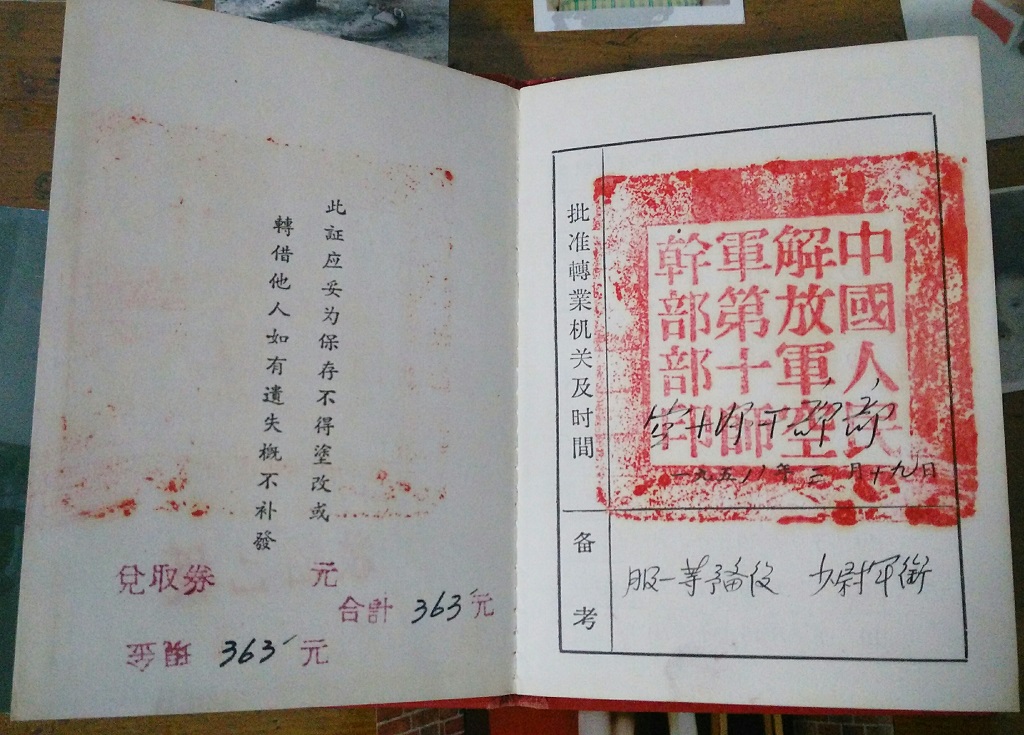 此証应妥为保存不得塗改或
轉借他人如有遺失概不补發
兌取券 元
合計 363 元
現金 363 元
批准轉業机关及时間
中國人民
解放軍空
軍第十師
幹部部印
空十师干部部
一九五八年三月十九日
备考
服一等予备役 少尉军衔